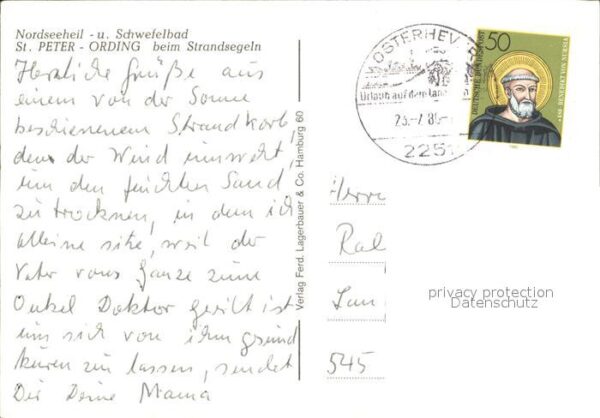 Nordseeheil - u. Schwefelbad
St. PETER - ORDING beim Strandsegeln
Herzliche Grüße aus
einem von der Sonne
beschienenem Strandkorb,
den der Wind umweht,
um den feuchten Sand
zu trocknen, in dem ich
alleine sitze, weil der
Vater vons Ganze zum
Onkel Doktor geeilt ist
um sich von ihm gesund
kuren zu lassen, sendet
Dir Deine Mama
Verlag Ferd. Lagerbauer & Co. Hamburg 60
OSTERHEV
Urlaub auf dem Lan
225
50
DEUTSCHE BUNDESPOST
Herr
Ral
Lan
545
privacy protection
Datenschutz